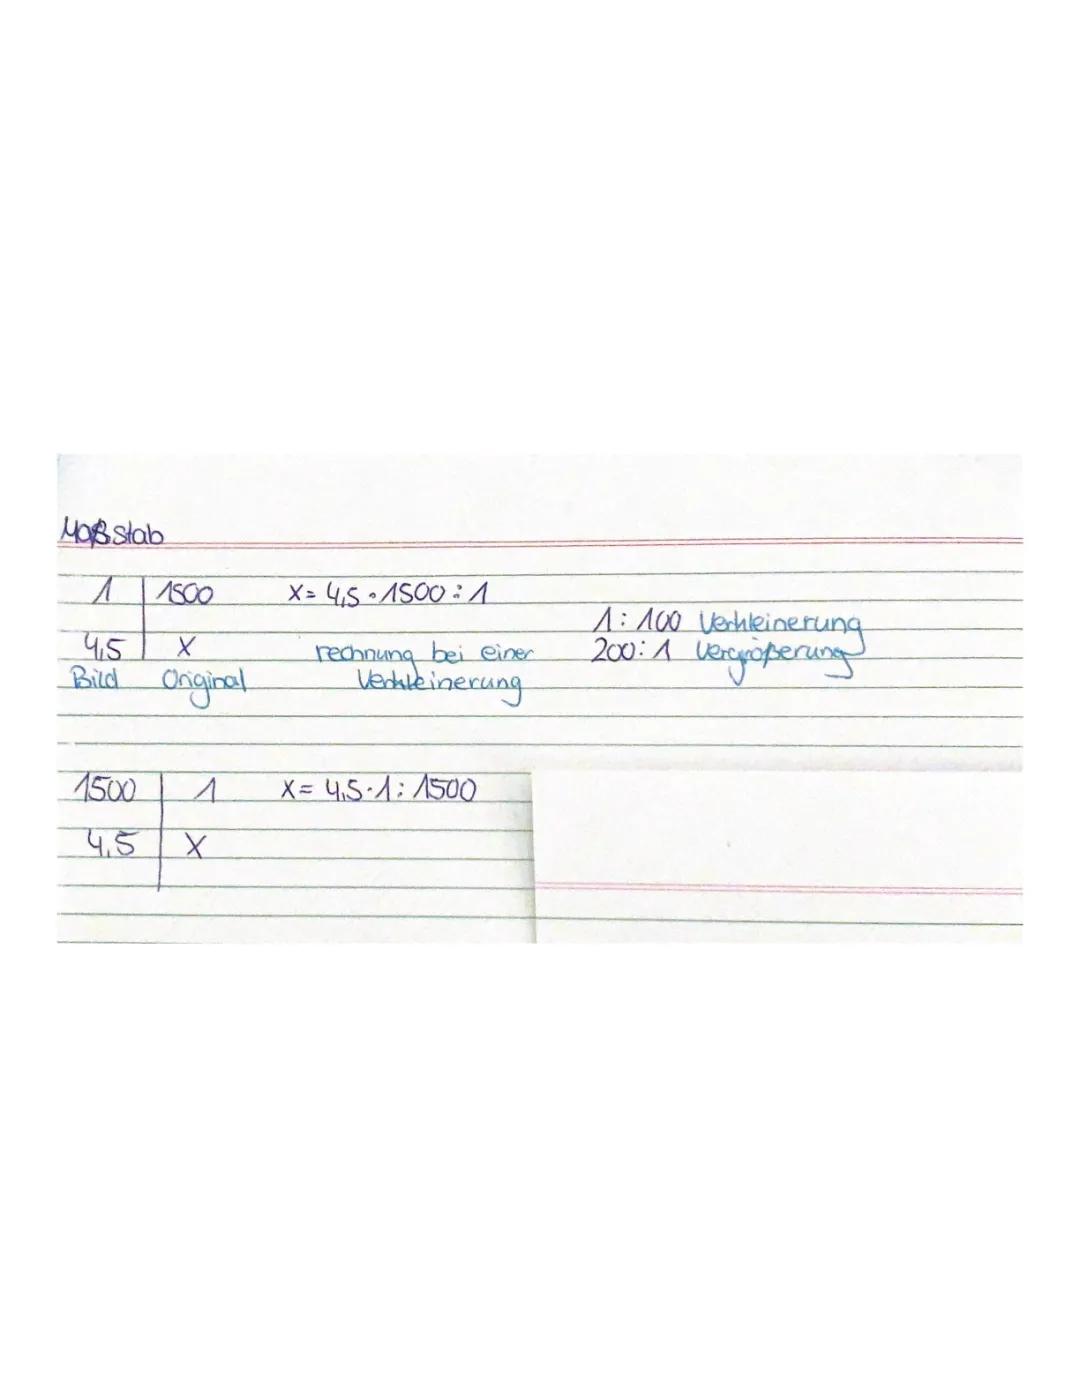 Maßstab
1 | 1500 x= 4,5 · 1500 : 1
1 : 100 Verkleinerung
4,5 | x rechnung bei einer 200 : 1 Vergrößerung
Bild Original Verkleinerung
1500 | 1 x= 4,5 · 1 : 1500
4,5 | x